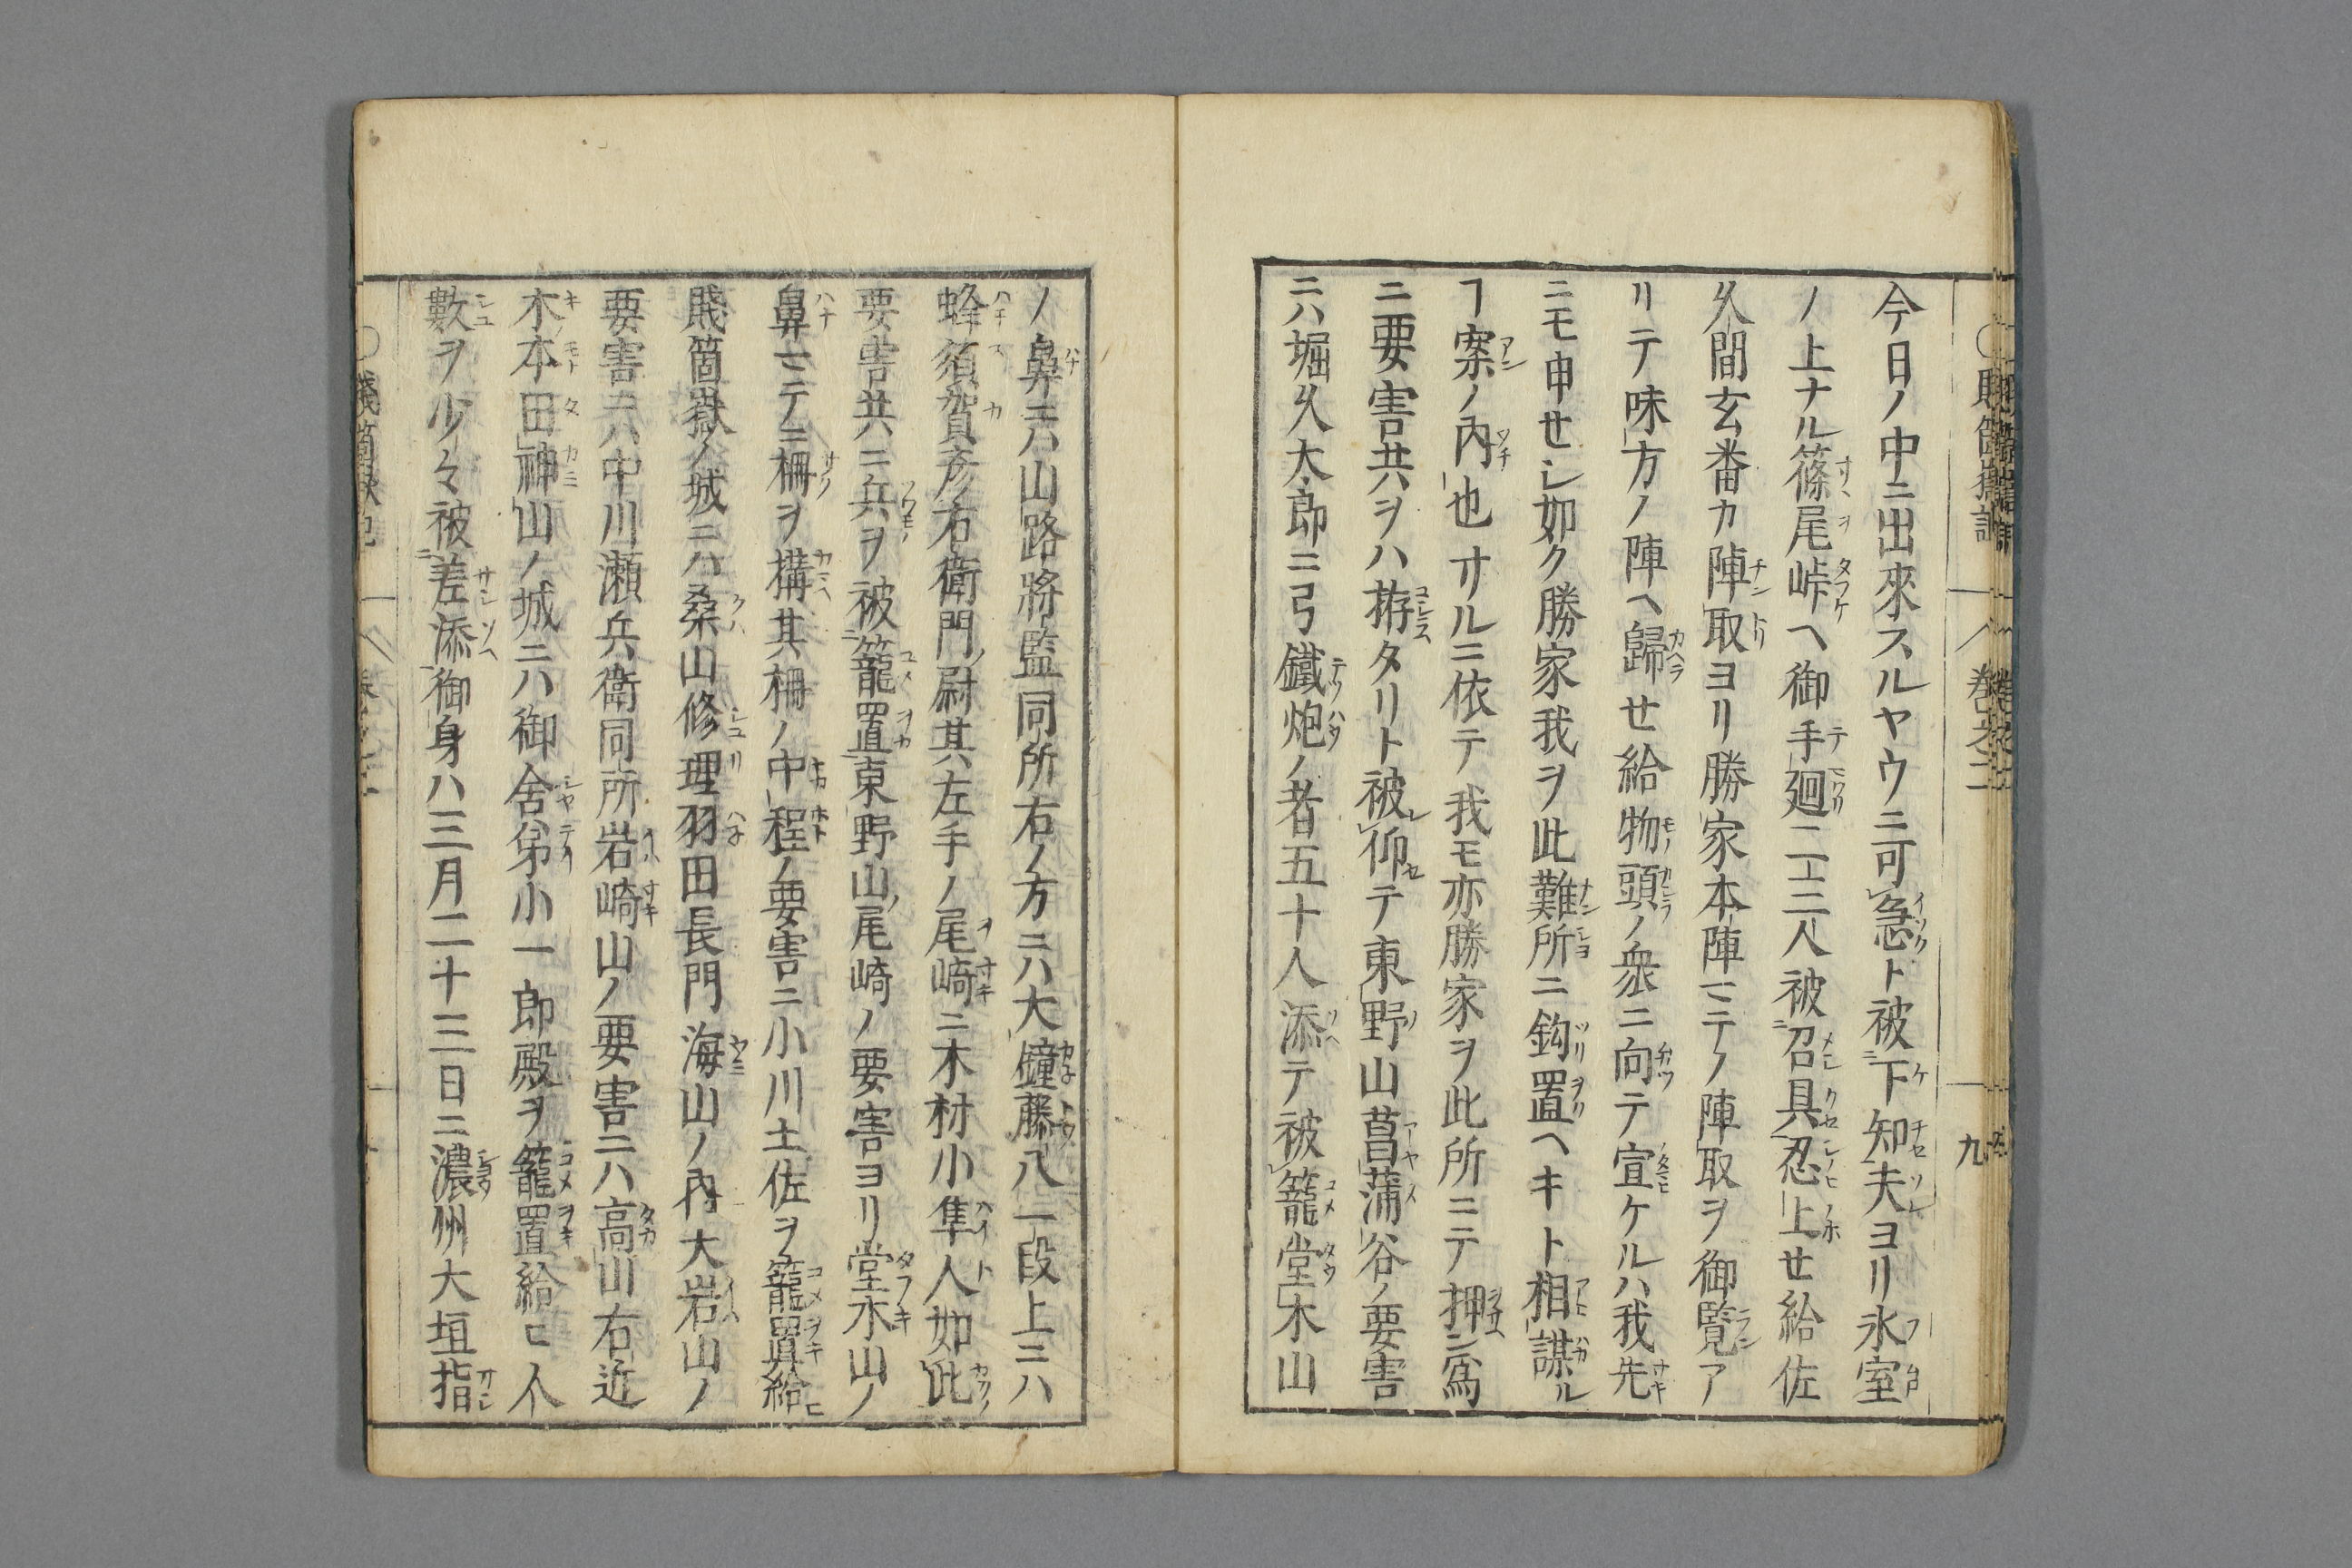 今日ノ中ニ出來スルヤウニ可急ト被下知夫ヨリ氷室
ノ上ナル篠尾峠ヘ御手廻二三人被召具忍上せ給佐
久間玄番カ陣取ヨリ勝家本陣ニテノ陣取ヲ御覽ア
リテ味方ノ陣ヘ歸せ給物頭ノ衆ニ向テ宣ケルハ我先
ニモ申せシ如ク勝家我ヲ此難所ニ鈎置ヘキト相謀ル
ヿ案ノ內也サルニ依テ我モ亦勝家ヲ此所ニテ押ン爲
ニ要害共ヲハ拵タリト被仰テ東野山菖蒲谷ノ要害
ニハ堀久太郎ニ弓鐵炮ノ者五十人添テ被籠堂木山
ノ鼻ニハ山路將監同所右ノ方ニハ大鐘藤八一段上ニハ
蜂須賀彥右衛門ノ尉其左手ノ尾崎ニ木村小隼人如此
要害共ニ兵ヲ被籠置東野山ノ尾崎ノ要害ヨリ堂木山ノ
鼻マテニ柵ヲ構其柵ノ中程ノ要害ニ小川土佐ヲ籠置給ヒ
賤箇嶽ノ城ニハ桑山修理羽田長門海山ノ內大岩山ノ
要害ニハ中川瀬兵衛同所岩崎山ノ要害ニハ高山右近
木本田神山ノ城ニハ御舍弟小一郎殿ヲ籠置給ヒ人
數ヲ少々被差添御身ハ三月二十三日ニ濃州大垣指